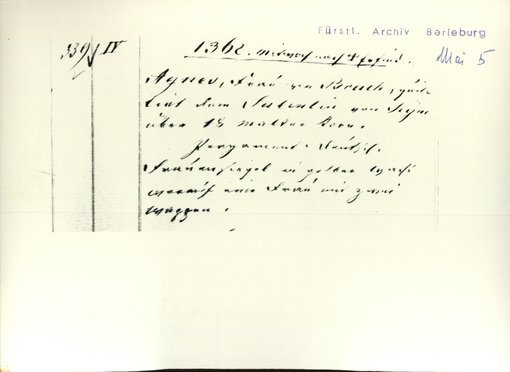 Fürstl. Archiv Berleburg
339 IV
1362. Mittwoch nach
Mai 5
Agnes, Frau von Bruch, quit-
tirt dem Salentin von Seyn
über 18 Malter Korn.
Pergament. Deutsch.
Frauensiegel in gelbem Wachs
worauf eine Frau mit zwei
Wappen.